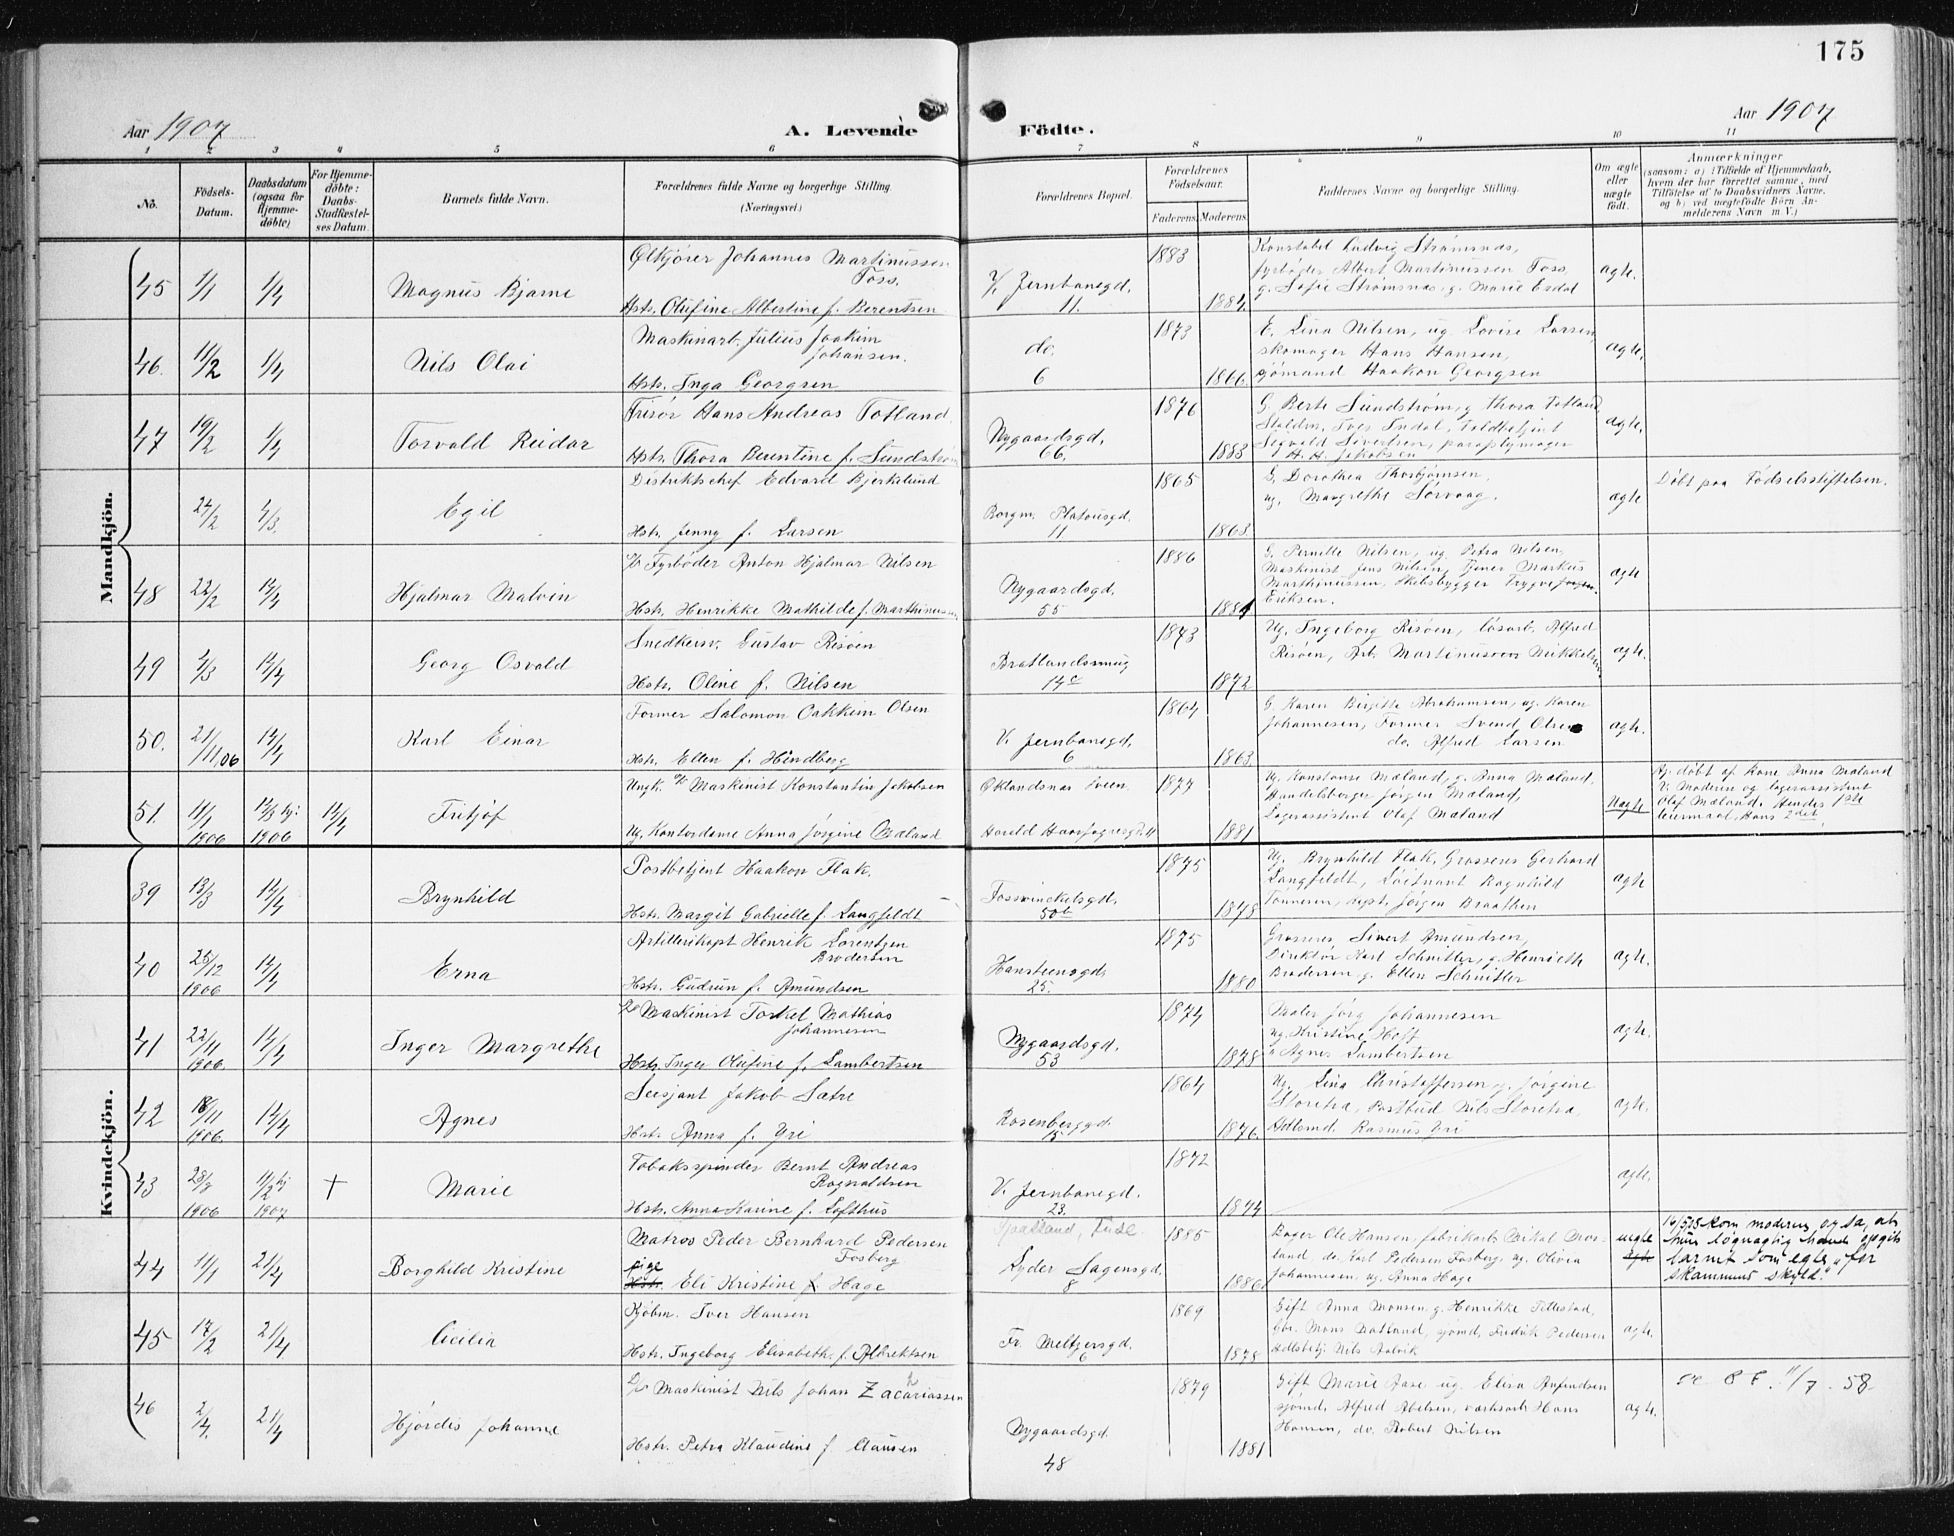 175
Aar 1907
A. Levende Födte.
Aar 1907
1 2 3 4 5 6 7 8 9 10 11
No.
Födsels-Datum.
Daabsdatum (ogsaa for Hjemmedöbte)
For Hjemmedöbte: Daabs-Stadfæstelses Datum.
Barnets fulde Navn.
Forældrenes fulde Navne og borgerlige Stilling.
(Næringsvei.)
Forældrenes Bopæl.
Forældrenes Födselsaar.
Faderens. Moderens.
Faddernes Navne og borgerlige Stilling.
Om ægte eller uægte födt.
Anmærkninger
(saasom: a) i Tilfælde af Hjemmedaab, hvem der har forrettet samme, med Tilföielse af to Daabsvidners Navne, og b) ved uægtefödte Börn Anmelderens Navn m. V.)
Mandkjön.
45 1/1 1/4 Magnus Bjarne
Ølkjører Johannes Martinussen
Foss.
Hstr. Olufine Albertine f. Berentsen
V. Jernbanegd. 11.
1883
Konstabel Ludvig Strømsnæs,
fyrbøder Albert Martinussen Foss,
g. Sofie Strømsnæs, g. Marie Esdal
ægte.
46. 11/2 1/4 Nils Olai
Maskinarb. Julius Joakim
Johansen.
Hstr. Inga Georgsen
do. 6
1873 1866.
E. Lina Nilsen, ug. Lovise Larsen
skomager Hans Hansen,
sjømand Haakon Georgsen
ægte.
47 19/2 1/4 Torvald Reidar
Frisør Hans Andreas Totland
Hstr. Thora Berentine f. Sundstrøm
Nygaardsgd. 66.
1876 1883
G. Berte Sundstrøm, g. Thora Totland
Sigvald Sivertsen, paraplymager
H. H. Jakobsen
ægte.
Egil
Distriktschef Edvard Bjerkelund
Hstr. Jenny f. Larsen
Borgm. Platousgd. 11
1865 1863
G. Dorothea Thorbjørnsen,
ug. Margrethe Sørvaag.
ægte
Døbt paa Fødselsstiftelsen.
48 22/2 14/4 Hjalmar Malvin
Fyrbøder Anton Hjalmar Nilsen
Hstr. Henrikke Mathilde f. Marthinussen
Nygaardsgd. 55
1886
G. Pernille Nilsen, ug. Petra Nilsen,
Maskinist Jens Nilsen, Tjener Markus
Marthinussen, Skibsbygger Trygve Jørgen
Eriksen.
ægte
49 14/4 Georg Osvald
Snedkersv. Gustav Risøen
Hstr. Oline f. Nilsen
Bratlandssmug 14c
1873 1872
Ug. Ingeborg Risøen, løsarb. Alfred
Risøen, Arb. Martinussen Mikkelsen
ægte.
50. 21/11,06 14/4 Karl Einar
Former Salomon Oakkim Olsen
Hstr. Ellen f. Hindberg
V. Jernbanegd. 6
1864 1863.
G. Karen Birgitte Abrahamsen, ug. Karen
Johannesen, Former Svend Olsen
do. Alfred Larsen
ægte.
51. 11/1 1906 14/4 Fritjof
Ungk. Maskinist Konstantin Jakobsen
Ug. Kontordame Anna Jørgine Mæland
1877 1881
Ug. Konstanse Mæland, g. Anna Mæland
Handelsborger Jørgen Mæland,
Lagerassistent Olaf Mæland
Uægte
Hj. døbt af Kone Anna Mæland
V. Moderen og lagerassistent
Olaf Mæland. Hendes 1ste
leiermaal, Hans 2det.
Kvindekjön.
39 13/3 14/4 Brynhild
Postbetjent Haakon Flak.
Hstr. Margit Gabrielle f. Langfeldt
Fosswinckelsgd. 50b
1875 1878
Ug. Brynhild Flak, Grosserer Gerhard
Langfeldt, Løitnant Ragnhild
Tønnesen, dept. Jørgen Braathen
ægte
40 25/12 1906 14/4 Erna
Artillerikapt Henrik Lorentzen
Brodersen
Hstr. Gudrun f. Amundsen
Hansteensgd. 25.
1875 1880
Grosserer Sivert Amundsen,
Direktør Karl Schnitler, g. Henriette
Brodersen g. Ellen Schnitler
ægte.
41 22/11 1906. 14/4 Inger Margrethe
Maskinist Torkel Mathias
Johannesen
Hstr. Inger Olufine f. Lambertsen
Nygaardsgd. 53
1874 1878
Maler Jørg Johannesen
ug. Kristine Hoff
" Agnes Lambertsen
ægte.
42 18/11 1906. 14/4 Agnes
Sersjant Jakob Sætre
Hstr. Anna f. Yri
Rosenberggd. 15
1864 1876.
Ug. Lina Christoffersen g. Jørgine
Storetra, Postbud Nils Storetra,
Rasmus Yri
ægte.
43 28/8 1906 11/2 hj 1907 † Marie
Tobaksspinder Bernt Andreas
Ragnvaldsen
Hstr. Anna Karine f. Lofthus
V. Jernbanegd. 23.
1872 1874
ægte.
44 11/1 21/4 Borghild Kristine
Matros Peder Bernhard Pedersen
Fosberg
pige
Hstr. Eli Kristine f. Hage
Lyder Sagensgd. 8
1885 1886.
Bager Ole Hansen, fabrikarb. Mikal Mos-
land, do. Karl Pedersen Fosberg, ug. Olivia
Johannesen, ug. Anna Hage
uægte
ægte
kom moderen og sa, at
hun løgnagtig havde opgit
barnet som ægte, "for
skammens skyld."
45 17/2 21/4 Cicilia
Kjøbm. Iver Hansen
Hstr. Ingeborg Elisabeth f. Albrektsen
Fr. Meltzersgd. 6
1869 1878
Gift Anna Monsen, g. Henrikke Tillestad,
Gbr. Mons Datland, sjømd. Fredrik Pedersen
Nils Aalvik
ægte.
46 2/4. 21/4 Hjørdis Johanne
Maskinist Nils Johan Zacariassen
Hstr. Petra Klaudine f Clausen
Nygaardsgd. 48
1879 1881
Gift Marie Aase ug. Elisa Anfindsen
sjømd. Alfred Abelsen, værkarb. Hans
Hansen, do. Robert Nilsen
ægte.
11/7. 58